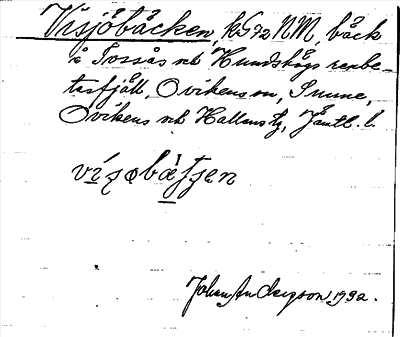 Visjöbäcken, kG72 NM, bäck
i Torsås och Hundshögs renbe-
tesfjäll, Ovikens sn, Sunne,
Ovikens och Hallens tg, Jämtl. l.
vísøbætʃen
Johan Anderzson 1932.